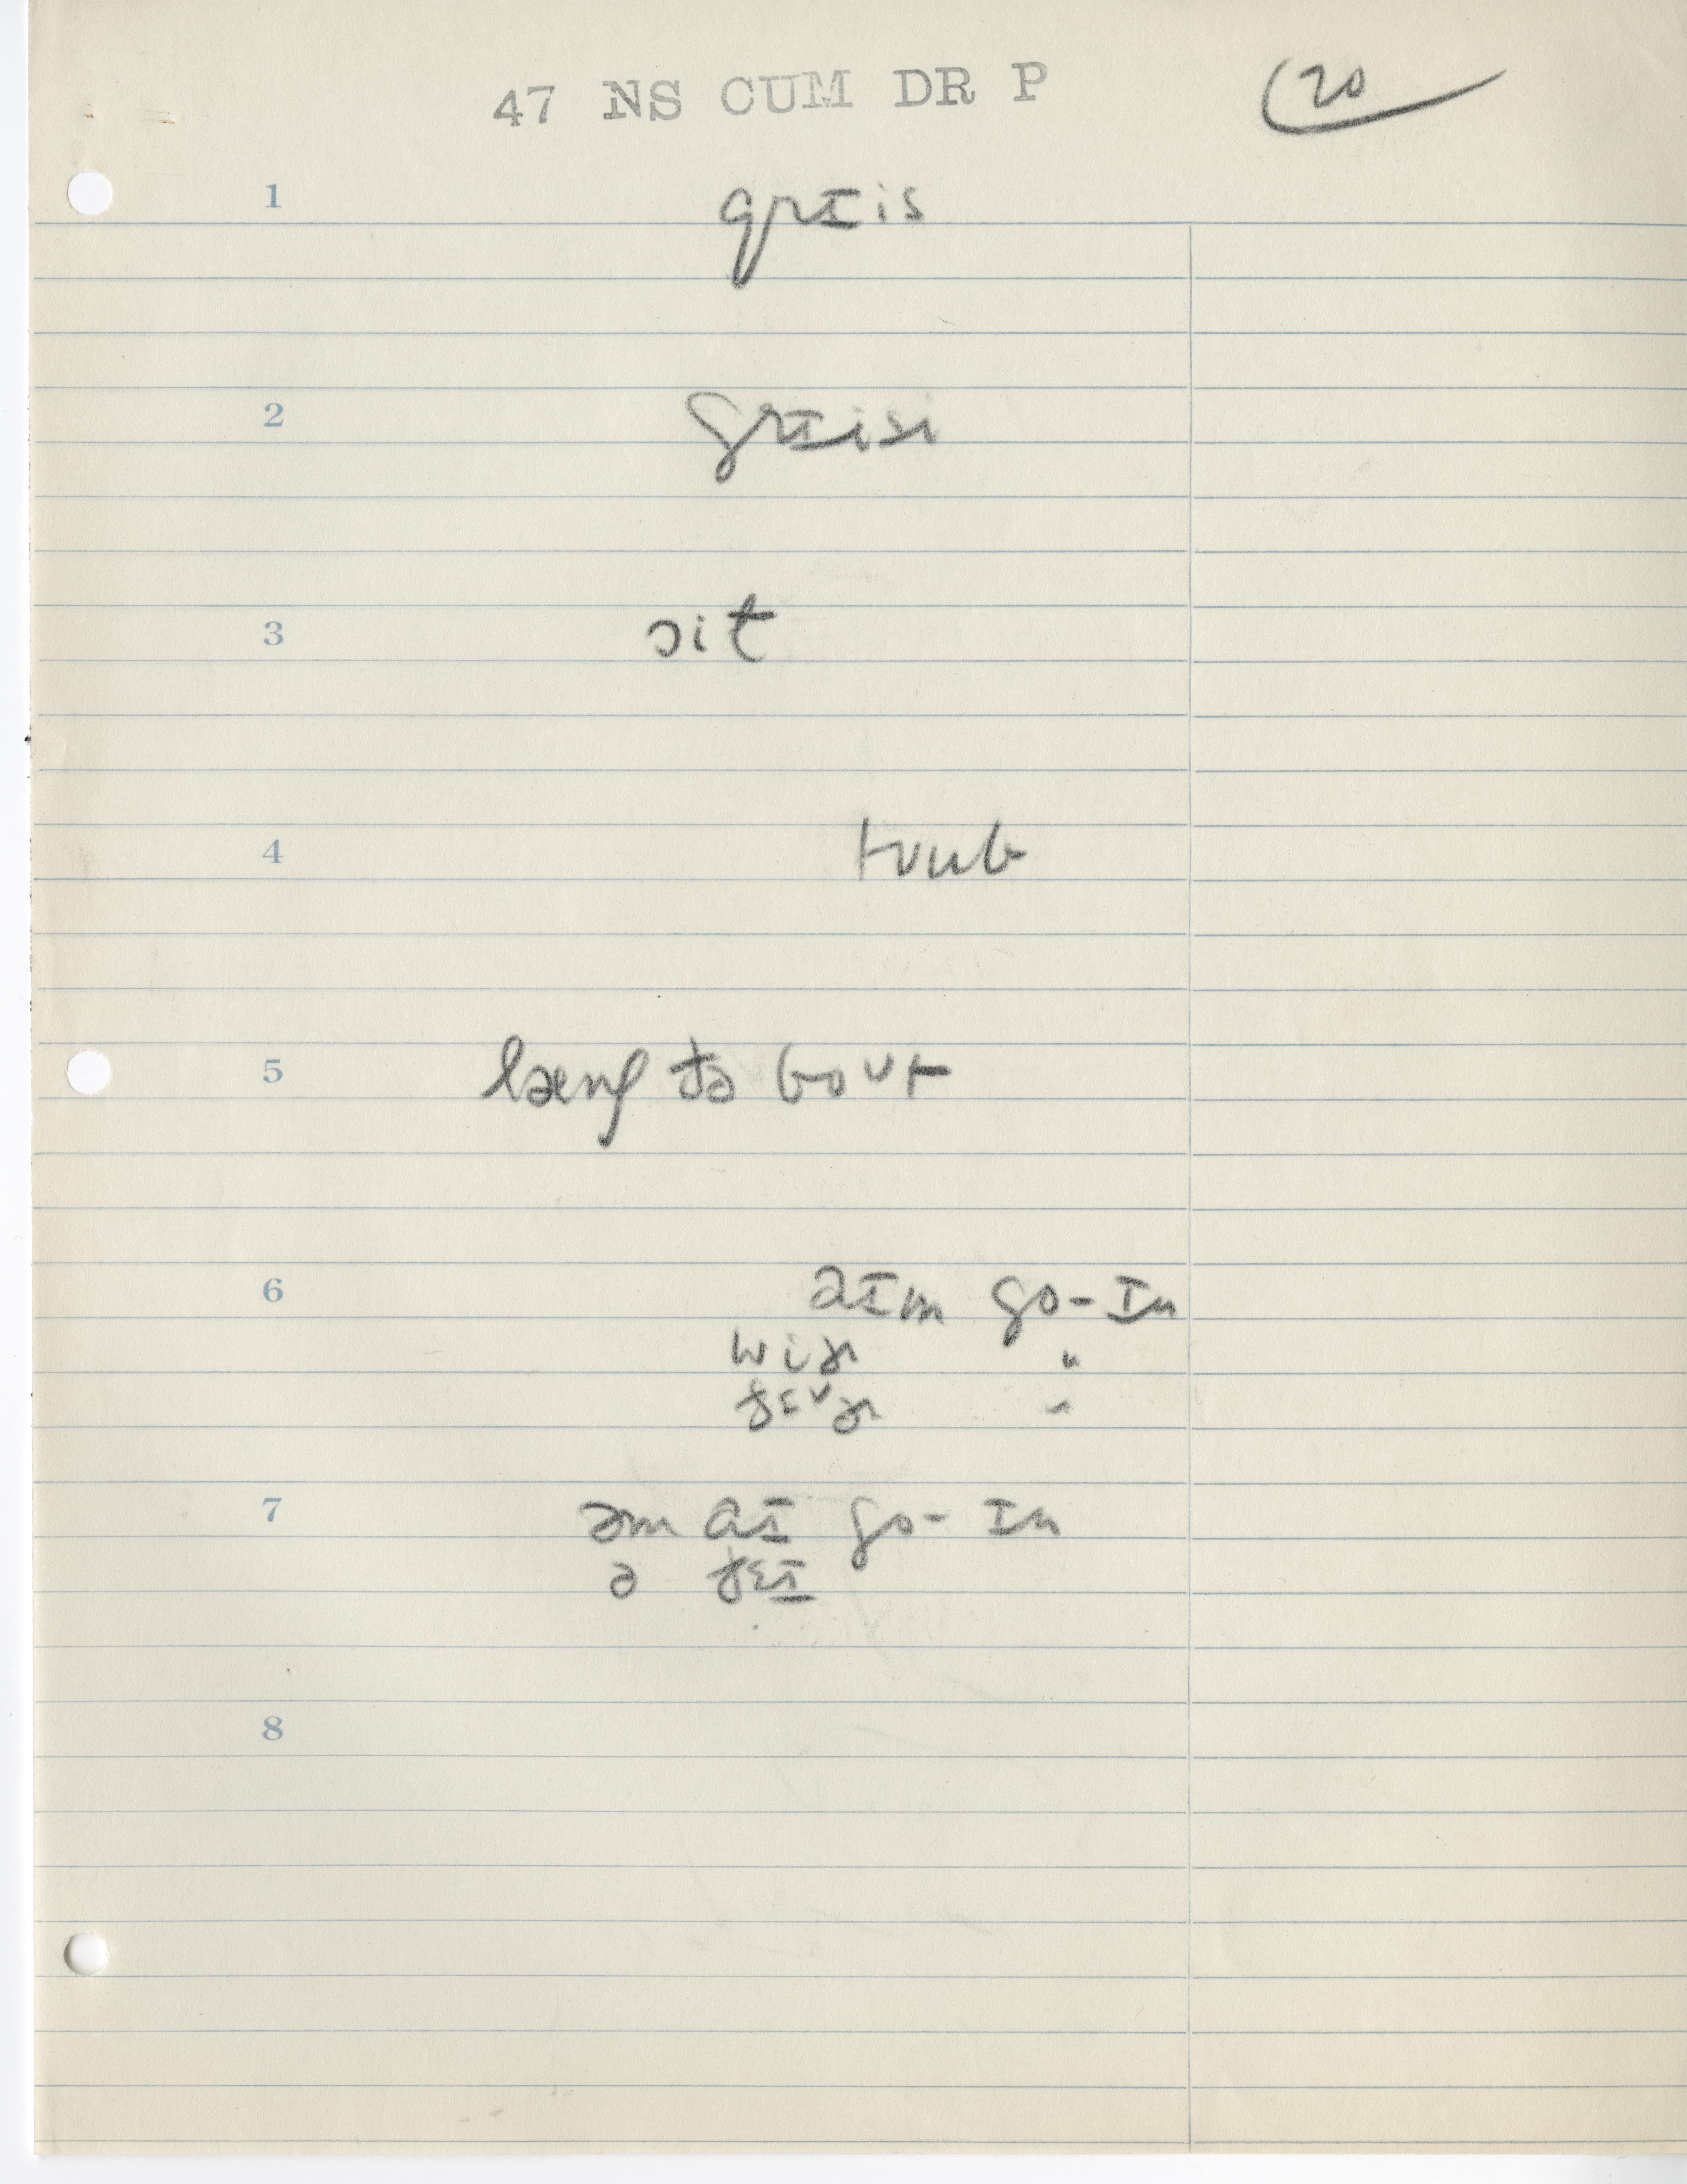 47 NS CUM DR P
20
1 grɪis
2 grɪisi
3 ɔit
4 tʊub
5 læŋ ðə boʊt
6 aɪm go-ɪn
wiɚ "
ðɛʊɚ "
7 əm aɪ go-ɪn
ə ðɛɪ
8